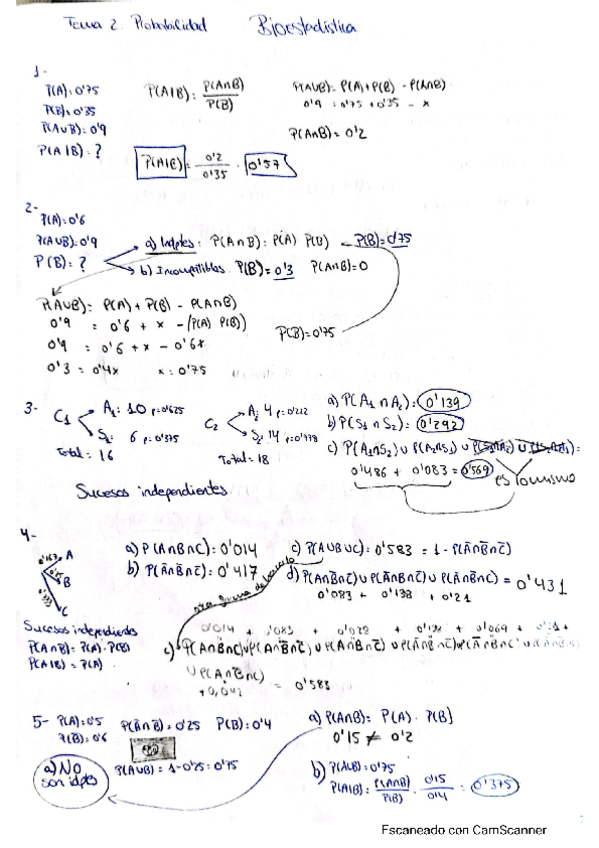 Tema 2. Probabilidad Bioestadística
1-
P(A)=0'75
P(B)=0'35
P(A∪B)=0'9
P(A|B)=?
P(A|B)= P(A∩B) / P(B)
P(A∪B)= P(A)+P(B) - P(A∩B)
0'9 = 0'75 + 0'35 - x
P(A∩B) = 0'2
P(A|B) = 0'2 / 0'35 = 0'57
2-
P(A)=0'6
P(A∪B)=0'9
P(B)=?
a) Indptes: P(A∩B)= P(A) P(B) P(B)=0'75
b) Incompatibles P(B)=0'3 P(A∩B)=0
P(A∪B)= P(A) + P(B) - P(A∩B)
0'9 = 0'6 + x - (P(A) P(B))
0'9 = 0'6 + x - 0'6x
0'3 = 0'4x x=0'75
P(B)=0'75
3-
C1 A1: 10 p=0'625
S1: 6 p=0'375
Total = 16
C2 A2: 4 p=0'222
S2: 14 p=0'778
Total = 18
Sucesos independientes
a) P(A1∩A2)= 0'139
b) P(S1∩S2)= 0'292
c) P(A1∩S2)∪P(A2∩S1)∪P(S1∩A2)∪P(S2∩A1)=
0'486 + 0'083 = 0'569
es lo mismo
4-
A
B
C
Sucesos independientes
P(A∩B)= P(A)·P(B)
P(A|B) = P(A)
a) P(A∩B∩C)= 0'014
b) P(Ā∩B̄∩C̄)= 0'417
c) P(A∪B∪C)= 0'583 = 1 - P(Ā∩B̄∩C̄)
d) P(A∩B̄∩C̄)∪P(Ā∩B∩C̄)∪P(Ā∩B̄∩C) = 0'431
0'083 + 0'138 + 0'21
otra forma de hacerlo
0'014 + 0'083 + 0'028 + 0'138 + 0'069 + 0'21 +
c) P(A∩B∩C)∪P(A∩B̄∩C̄)
+0,042 = 0'583
5- P(A)=0'5 P(Ā∩B̄)=0'25 P(B)=0'4
P(B̄)=0'6
P(A∪B) = 1-0'25=0'75
a) NO son idptes
a) P(A∩B)= P(A) · P(B)
0'15 ≠ 0'2
b) P(A∪B)=0'75
P(A|B)= P(A∩B) / P(B) = 0'15 / 0'4 = 0'375
Escaneado con CamScanner